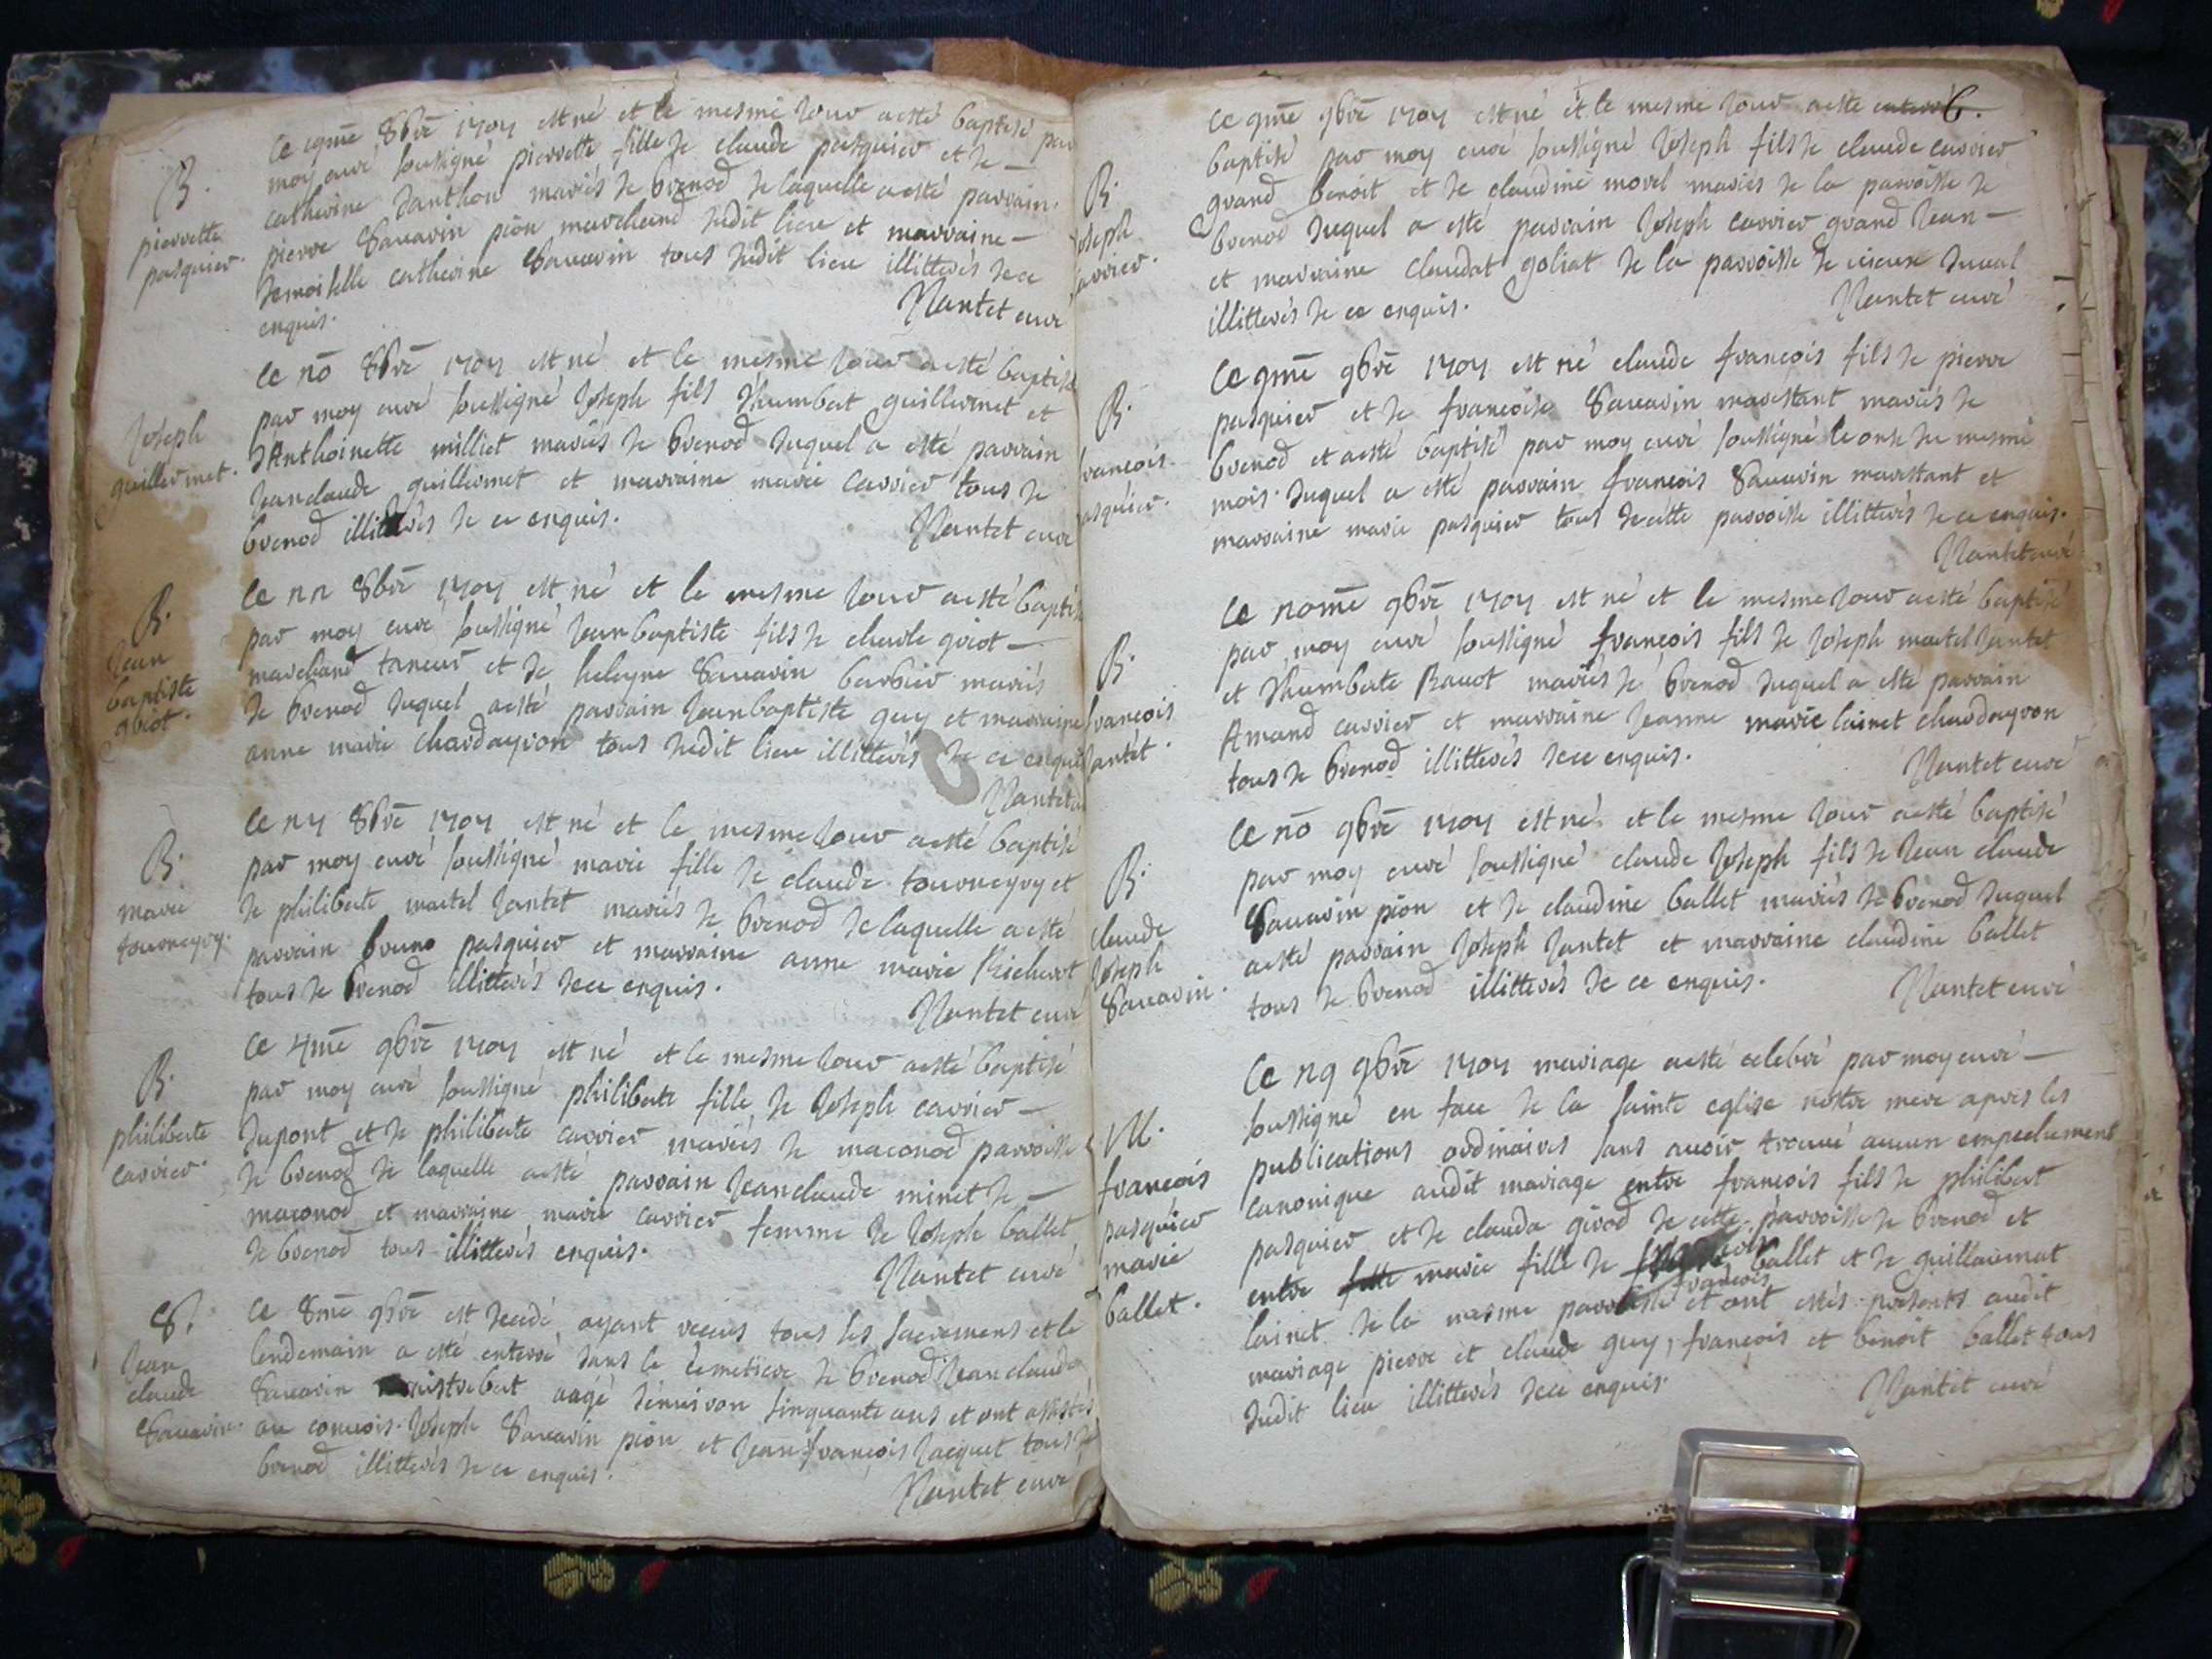 B.
pierrette
pasquier.
Ce 19me 8bre 1704 est né et le mesme jour a esté baptisé par
moy curé soussigné pierrette fille de claude pasquier et de
catherine Janthon mariés de brenod de laquelle a esté parrain
pierre Sauarin pion marchand dudit lieu et marraine
demoiselle catherine Sauarin tous dudit lieu illitterés de ce
enquis.
Nantet curé
Joseph
guillermet.
Ce 20 8bre 1704 est né et le mesme jour a esté baptisé
par moy curé soussigné Joseph fils d'humbert guillermet et
d'Anthoinette milliet mariés de brenod duquel a esté parrain
Jeanclaude guillermet et marraine marie Carrier tous de
brenod illitterés de ce enquis.
Nantet curé
B.
Jean
baptiste
griot.
Ce 22 8bre 1704 est né et le mesme jour a esté baptisé
par moy curé soussigné Jeanbaptiste fils de charle griot
marchand taneur et de heleyne Sauarin barbier mariés
de brenod duquel a esté parrain Jeanbaptiste guy et marraine
anne marie chardayron tous dudit lieu illitterés de ce enquis
Nantet
B.
marie
tournegry.
Ce 24 8bre 1704 est né et le mesme jour a esté baptisé
par moy curé soussigné marie fille de claude tournegry et
de philiberte martel Jantet mariés de brenod de laquelle a esté
parrain bruno pasquier et marraine anne marie Richerot
tous de brenod illitterés de ce enquis.
Nantet curé
B.
philiberte
carrier.
Ce 4me 9bre 1704 est né et le mesme jour a esté baptisé
par moy curé soussigné philiberte fille de Joseph carrier
dupont et de philiberte carrier mariés de maconod parroisse
de brenod de laquelle a esté parrain Jeanclaude minet de
maconod et marraine marie carrier femme de Joseph ballet
de brenod tous illitterés enquis.
Nantet curé
S.
Jean
claude
Sauarin.
Ce 8me 9bre est decedé ayant receus tous les sacrements et le
lendemain a esté enterré dans le cemetiere de brenod Jeanclaude
Sauarin aagé d'enuiron sinquante ans et ont assistés
au conuois Joseph Sauarin pion et Jean françois Jacquet tous de
brenod illitterés de ce enquis.
Nantet curé
6.
B.
Joseph
carrier.
Ce 9me 9bre 1704 est né et le mesme jour a esté enterré
baptisé par moy curé soussigné Joseph fils de claude carrier
grand benoit et de claudine morel mariés de la parroisse de
brenod duquel a esté parrain Joseph carrier grand Jean
et marraine claudat goliat de la parroisse de vieux dual
illitterés de ce enquis.
Nantet curé
B.
françois
pasquier.
Ce 9me 9bre 1704 est né claude françois fils de pierre
pasquier et de françoise Sauarin marestant mariés de
brenod et a esté baptisé par moy curé soussigné le onse du mesme
mois duquel a esté parrain françois Sauarin marestant et
marraine marie pasquier tous de cette parroisse illitterés de ce enquis.
Nantet curé
B.
françois
Jantet.
Ce 20me 9bre 1704 est né et le mesme jour a esté baptisé
par moy curé soussigné françois fils de Joseph martel Jantet
et d'humberte Rauot mariés de brenod duquel a esté parrain
Amand carrier et marraine Jeanne marie lainet chardayron
tous de brenod illitterés de ce enquis.
Nantet curé
B.
claude
Joseph
Sauarin.
Ce 20 9bre 1704 est né et le mesme jour a esté baptisé
par moy curé soussigné claude Joseph fils de Jean claude
Sauarin pion et de claudine ballet mariés de brenod duquel
a esté parrain Joseph Jantet et marraine claudine ballet
tous de brenod illitterés de ce enquis.
Nantet curé
M.
françois
pasquier
marie
ballet.
Ce 29 9bre 1704 mariage a esté celebré par moy curé
soussigné en face de la sainte eglise nostre mere apres les
publications ordinaires sans auoir trouué aucun empechement
canonique audit mariage entre françois fils de philibert
pasquier et de clauda girod de cette parroisse de brenod et
entre fille marie fille de françois ballet et de guillaumat
lainet de la mesme parroisse et ont estés presents audit
mariage pierre et claude guy, françois et benoit ballet tous
dudit lieu illitterés de ce enquis.
Nantet curé